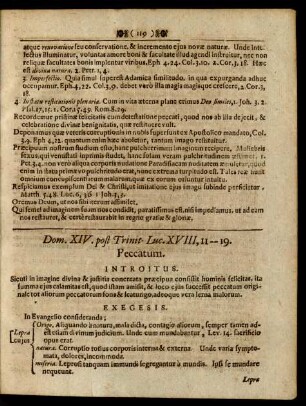 (119)
atque renovatione seu conservatione, & incremento ejus novæ naturæ. Unde intellectus illuminatur, voluntas amore boni & facultate illud agendi instruitur, nec non
reliquæ facultates bonis implentur viribus. Eph. 4. 24. Col. 3. 10. 2. Cor. 3. 18. Hæc
est divina natura. 2. Petr. 1, 4.
3. Imperfectio. Quia simul superest Adamica similitudo, in qua expurganda adhuc
occupamur. Eph. 4, 22. Col. 3, 9. debet vero illa magis magisque crescere, 2. Cor. 3,
18.
4. In statu restitutionis plenariæ. Cum in vita æterna plane erimus Deo similes, 1. Joh. 3. 2.
Psal. 17, 15. 1. Cor. 15, 49. Rom. 8. 29.
Recordemur pristinæ felicitatis cum detestatione peccati, quod nos ab illa dejecit, &
celebratione divinæ benignitatis, quæ restituit.
Deponamus quæ veteris corruptionis in nobis supersunt ex Apostolico mandato, Col.
3, 9. Eph. 4, 22. quantum enim hæc abolentur, tantum imago restituitur.
Præcipuum nostrum studium esto, hanc pulcherrimam imaginem recipere. Muliebris
sexus, qui venustati ingenitis studet, hanc pulchritudinem præcipue quærat, 1.
Pet. 3, 4. non vero aliqua corporis munditie Paradisiaca adfectare, animi interim neglecta.
externa enim turpitudo est. Tales ream
omnium condemnationem incurrunt
Respiciamus exemplum Dei & Christi, ut imitatione ejus imago subinde perficiatur.
Matth. 5. 48. Luc. 6, 36. 1. Joh. 3, 5.
Oremus Deum, ut nos miseri, reformet.
Qui semel ad imaginem suam nos condidit, paratissimus est, nisi nolimus, ut ad eam
nos restituret, & certe restituit in regno gratiæ & gloriæ.
Dom. XIV. post Trinit. Luc. XVIII, 11--19.
Peccatum.
INTROITUS.
Sicuti in imagine divina & justitia concreata præcipua consistit hominis felicitas, ita
summa ejus calamitas est, quod istam amisit, & loco ejus successit peccatum originale tot aliorum peccatorum fons & scaturigo, adeoque vera lerna malorum.
EXEGESIS.
In Evangelio consideranda;
Lepra
cujus
Origo. Aliquando à natura, mala diæta, contagio aliorum, semper tamen adest etiam divinum judicium. Unde cum mundabantur, Lev. 14. sacrificio
opus erat.
natura. Corruptio totius corporis interna & externa. Unde varia symptomata, dolores, incommoda.
miseria. Leprosi tanquam immundi segregantur à mundis. Ipsi se mundare
nequeunt.
Lepra